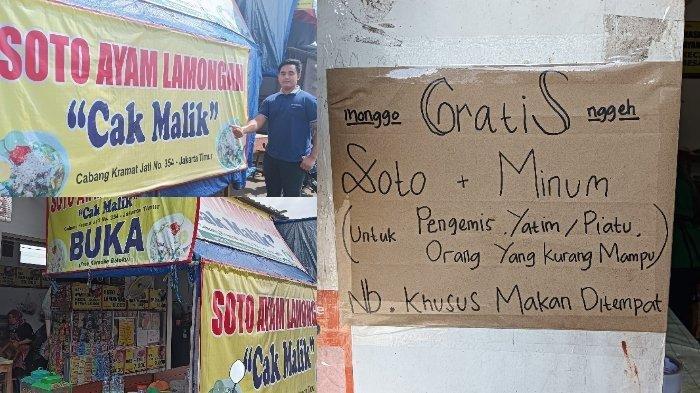 SOTO AYAM LAMONGAN
"Cak Malik"
Cabang Kramat Jati No. 354 - Jakarta Timur
SOTO AYAM LAMONGAN
"Cak Malik"
BUKA
SOTO AYAM LAMONGAN
"Cak Malik"
monggo Gratis nggeh
Soto + Minum
(Untuk Pengemis. Yatim / Piatu.
Orang Yang Kurang Mampu)
Nb. Khusus Makan Ditempat